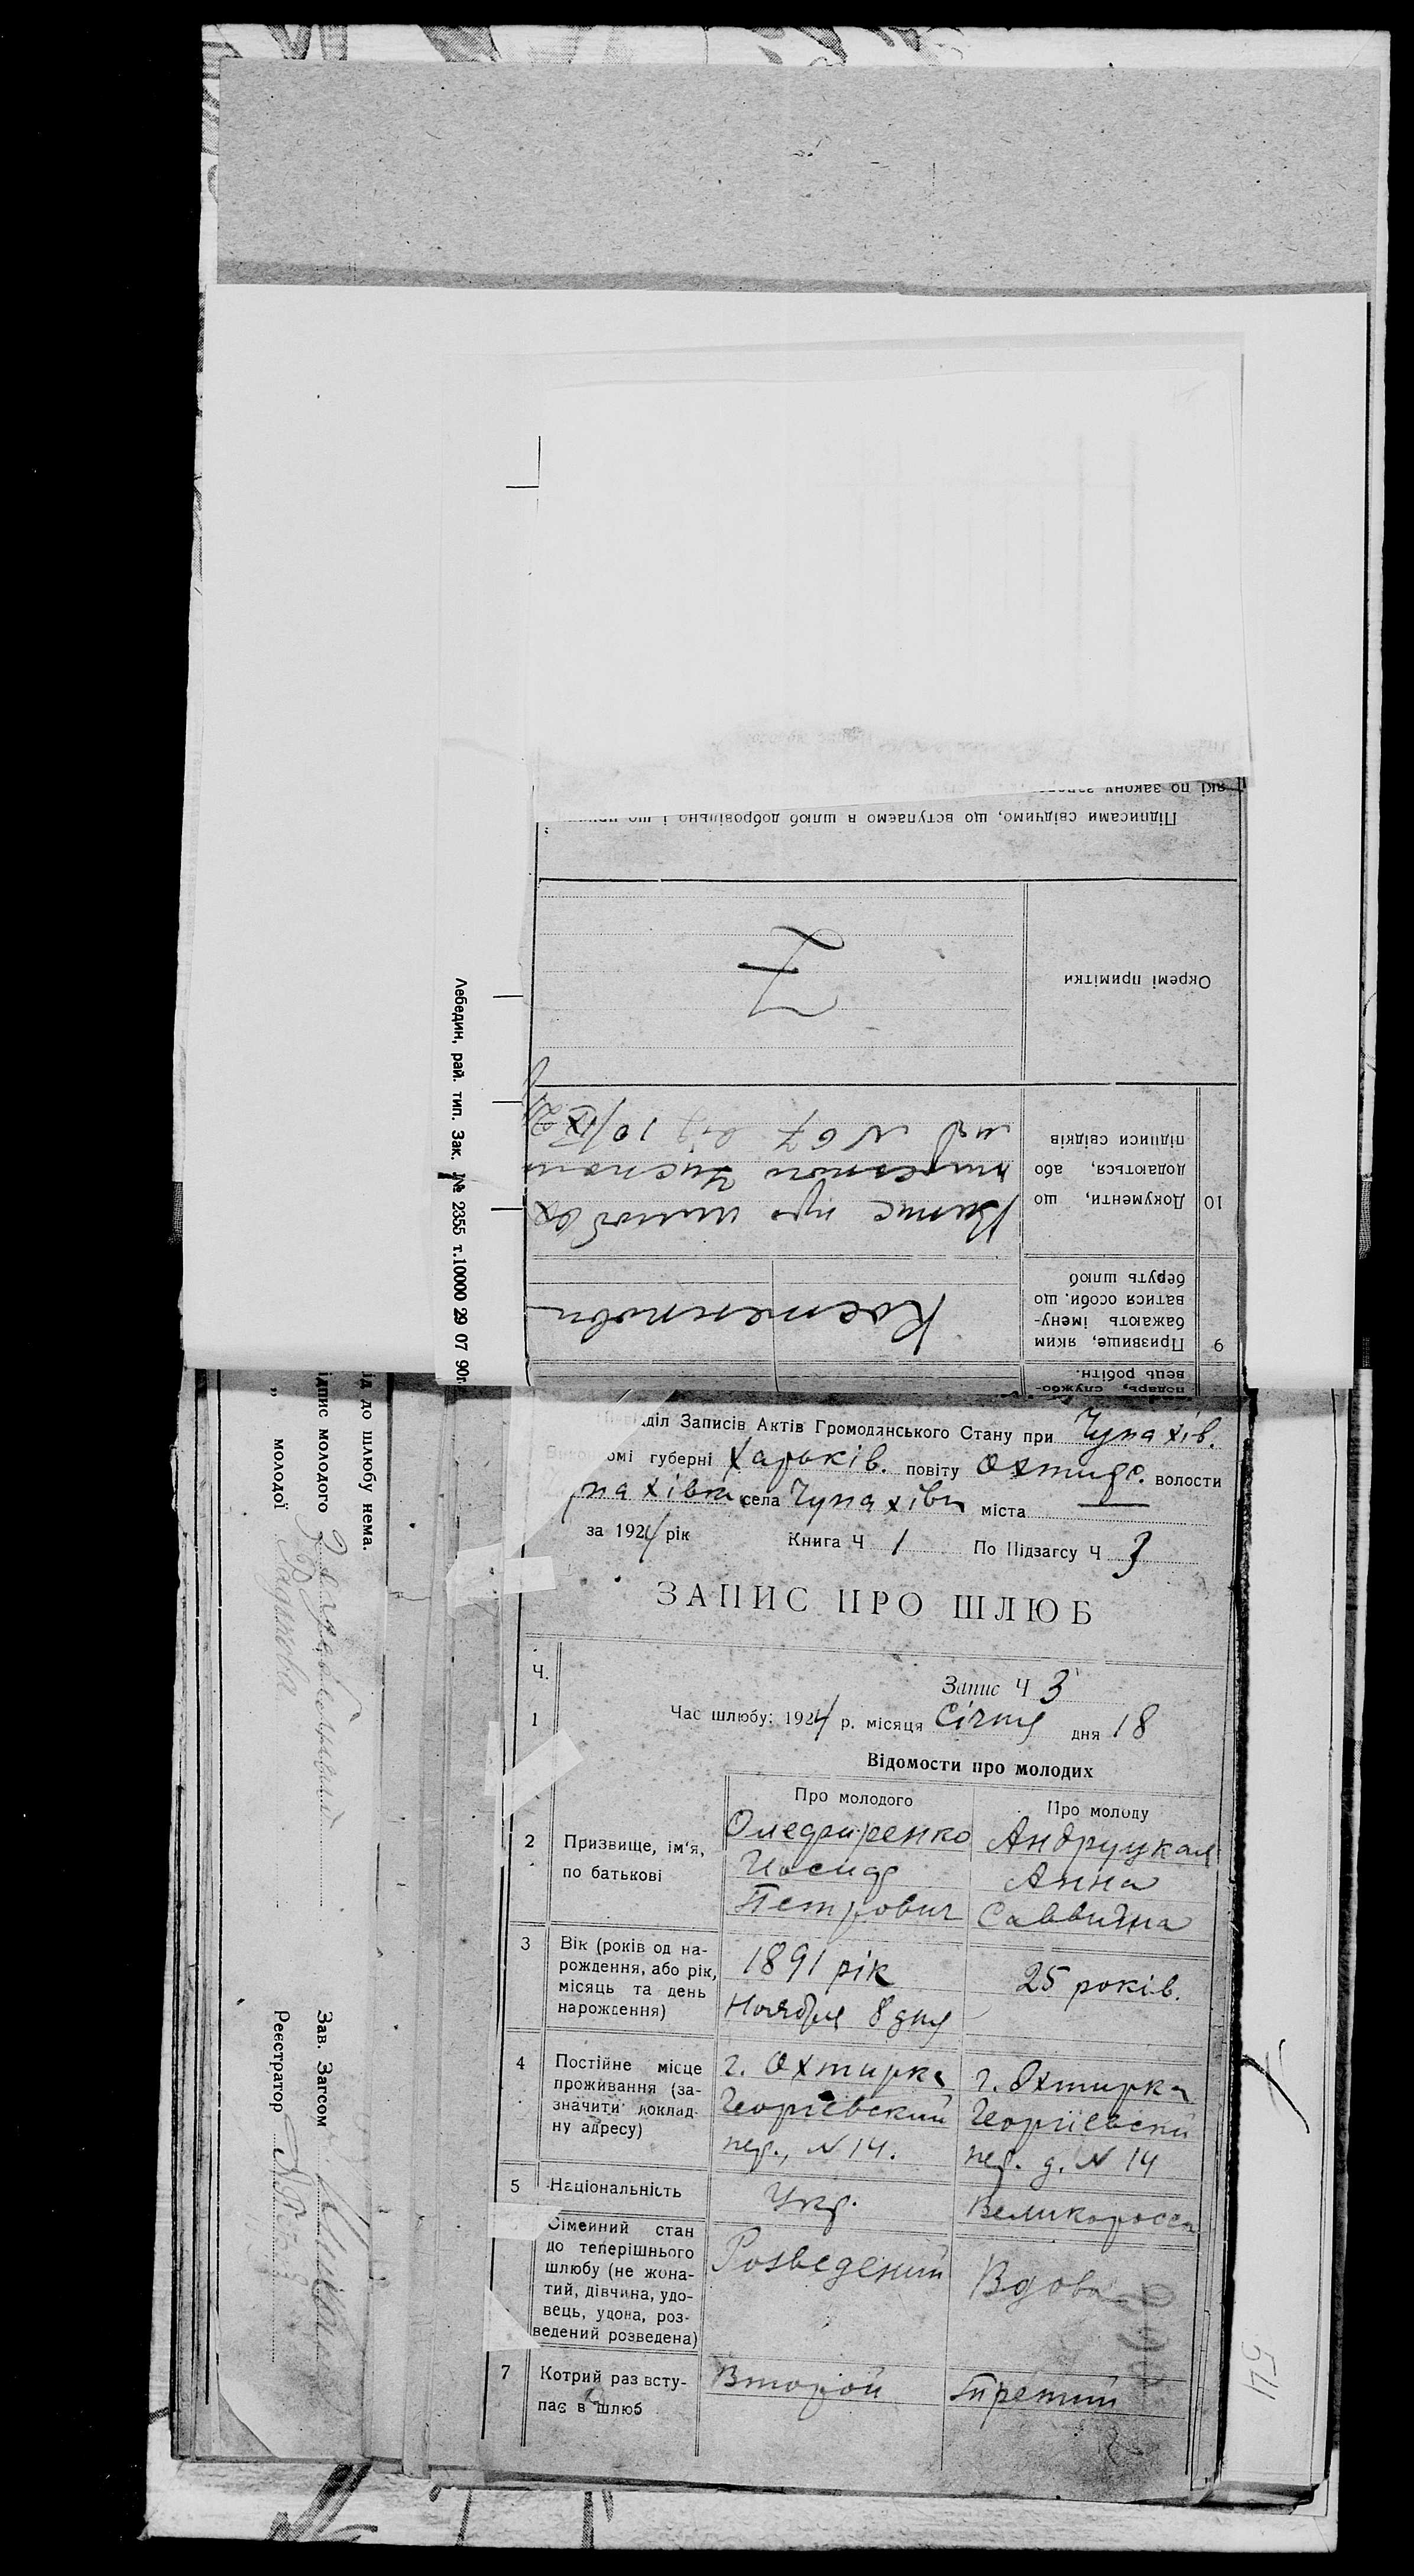 які по закону
Підписами свідчимо, що вступаємо в шлюб добровільно і що
Окремі примітки
10
Документи, що
додаються, або
підписи свідків
Витис про шлюб
9
Призвище, яким
бажають імену-
ватися особи, що
беруть шлюб
Костенкови
подарь, службо-
вець робітн.
Лебедин, рай. тип. Зак. № 2355 т.10000 29 07 90г.
ід до шлюбу нема.
ідпис молодого
„ молодої
Зав. Загсом
Реєстратор
діл Записів Актів Громодянського Стану при Чупахів.
омі губерні Харьків. повіту Охтирс. волости
пахівка села Чупахівка міста
за 1924 рік Книга Ч 1 По Підзагсу Ч 3
ЗАПИС ПРО ШЛЮБ
Ч.
Запис Ч 3
1 Час шлюбу: 1924 р. місяця Січня дня 18
Відомости про молодих
Про молодого Про молоду
2 Призвище, ім'я,
по батькові
Олефиренко
Иосиф
Петрович
Андруцкая
Анна
Саввична
3 Вік (років од на-
рождення, або рік,
місяць та день
нарождення)
1891 рік
Ноября 8 дня
25 років.
4 Постійне місце
проживання (за-
значити доклад-
ну адресу)
г. Охтирка
Георгіевский
пер., № 14.
г. Охтирка
Георгіевский
пер. д. № 14
5 Національність Укр. Великоросса
Сімейний стан
до теперішнього
шлюбу (не жона-
тий, дівчина, удо-
вець, удова, роз-
ведений розведена)
Розведений
Вдова
7 Котрий раз всту-
пає в шлюб
Второй
Третий
54